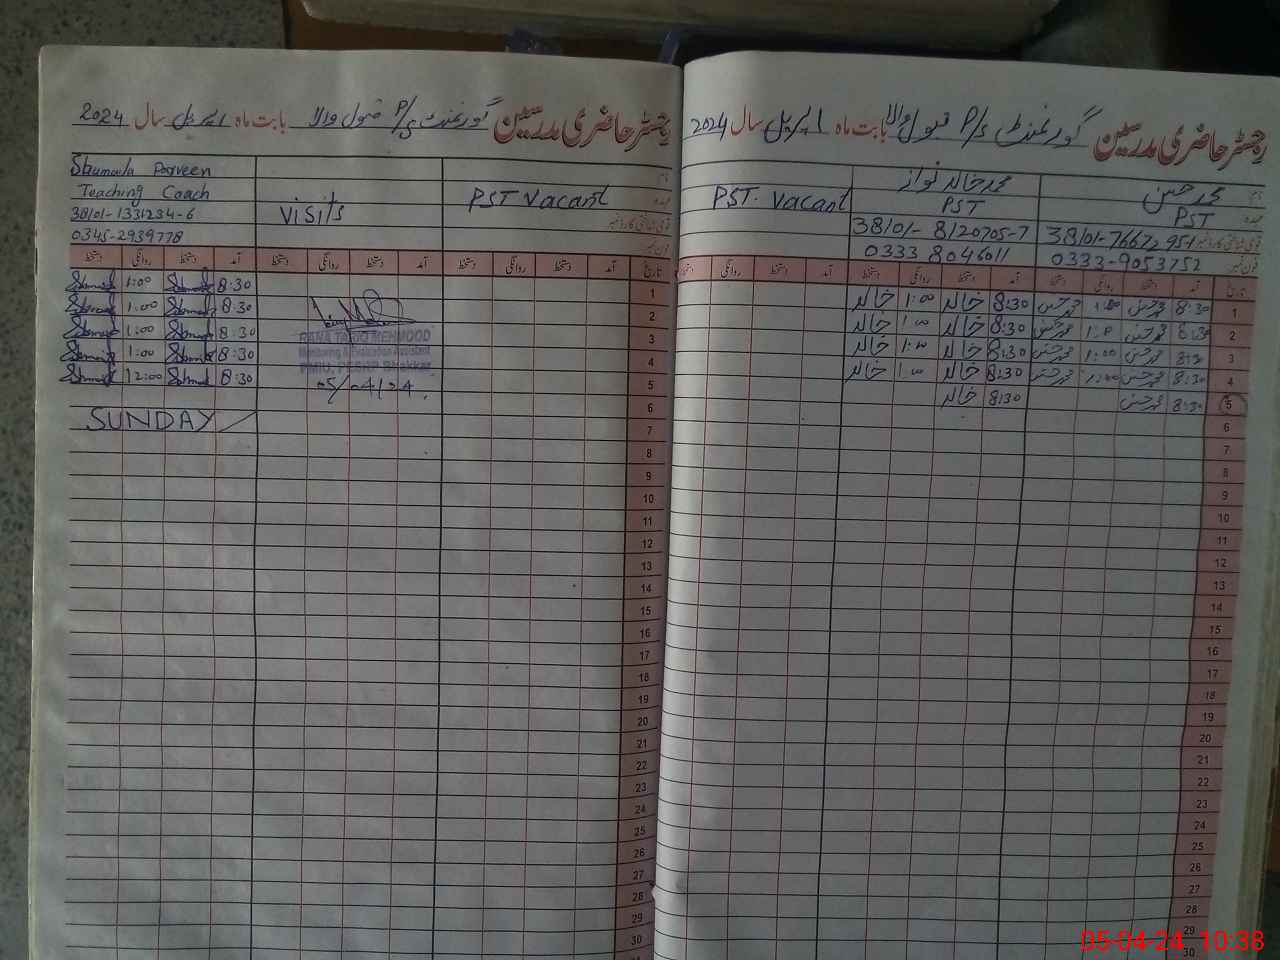 رجسٹر حاضری مدرسین گورنمنٹ P/S قبول والا بابت ماہ اپریل سال 2024
نام محمد حسن
محمد خالد نواز
عہدہ PST
PST
PST. Vacant
38101-8120705-7
فون نمبر 0333-9053752
0333 8046011
تاریخ آمد دستخط روانگی دستخط آمد دستخط روانگی دستخط آمد دستخط روانگی دستخط
1 8:30 محمد حسن 1:00 محمد حسن 8:30 خالد 1:00 خالد
2 8:30 محمد حسن 1:00 محمد حسن 8:30 خالد 1:00 خالد
3 8:30 محمد حسن 1:00 محمد حسن 8:30 خالد 1:00 خالد
4 8:30 محمد حسن 1:00 محمد حسن 8:30 خالد 1:00 خالد
5 8:30 محمد حسن 8:30 خالد
6
7
8
9
10
11
12
13
14
15
16
17
18
19
20
21
22
23
24
25
26
27
28
29
30
رجسٹر حاضری مدرسین گورنمنٹ P/S قبول والا بابت ماہ اپریل سال 2024
نام
Shumaila Parveen
عہدہ PST Vacant
Visits
Teaching Coach
38101-1331234-6
فون نمبر
0345-2939778
تاریخ آمد دستخط روانگی دستخط آمد دستخط روانگی دستخط آمد دستخط روانگی دستخط
1 8:30 1:00
2 8:30 1:00
3 8:30 1:00
4 8:30 1:00
5 8:30 12:00
RANA TAJOO MEHMOOD
Monitoring & Evaluation Assistant
PMIU, PESRP Bhakkar
05/04/24.
6
7 SUNDAY
8
9
10
11
12
13
14
15
16
17
18
19
20
21
22
23
24
25
26
27
28
29
30
05-04-24 10:38